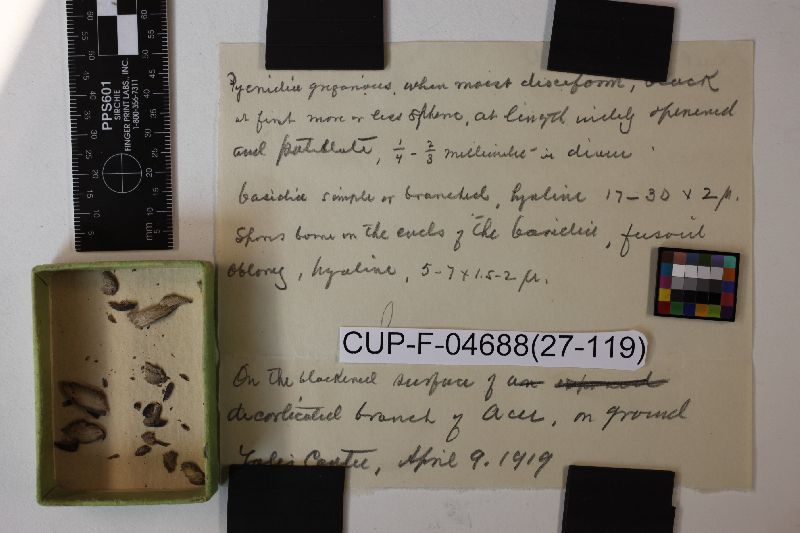 Pycnidia gregarious, when moist disciform, black
at first more or less sphere, at length widely opened
and patellate, 1/4 - 2/3 millimeter in diam.
basidia simple or branched, hyaline 17-30 x 2 µ.
Spores borne on the ends of the basidia, fusoid
oblong, hyaline, 5-7 x 1.5-2 µ.
CUP-F-04688(27-119)
On the blackened surface of
decorticated branch of Acer, on ground
April 9. 1919
PPS601
SIRCHIE
FINGER PRINT LABS, INC.
1-800-356-7311
mm